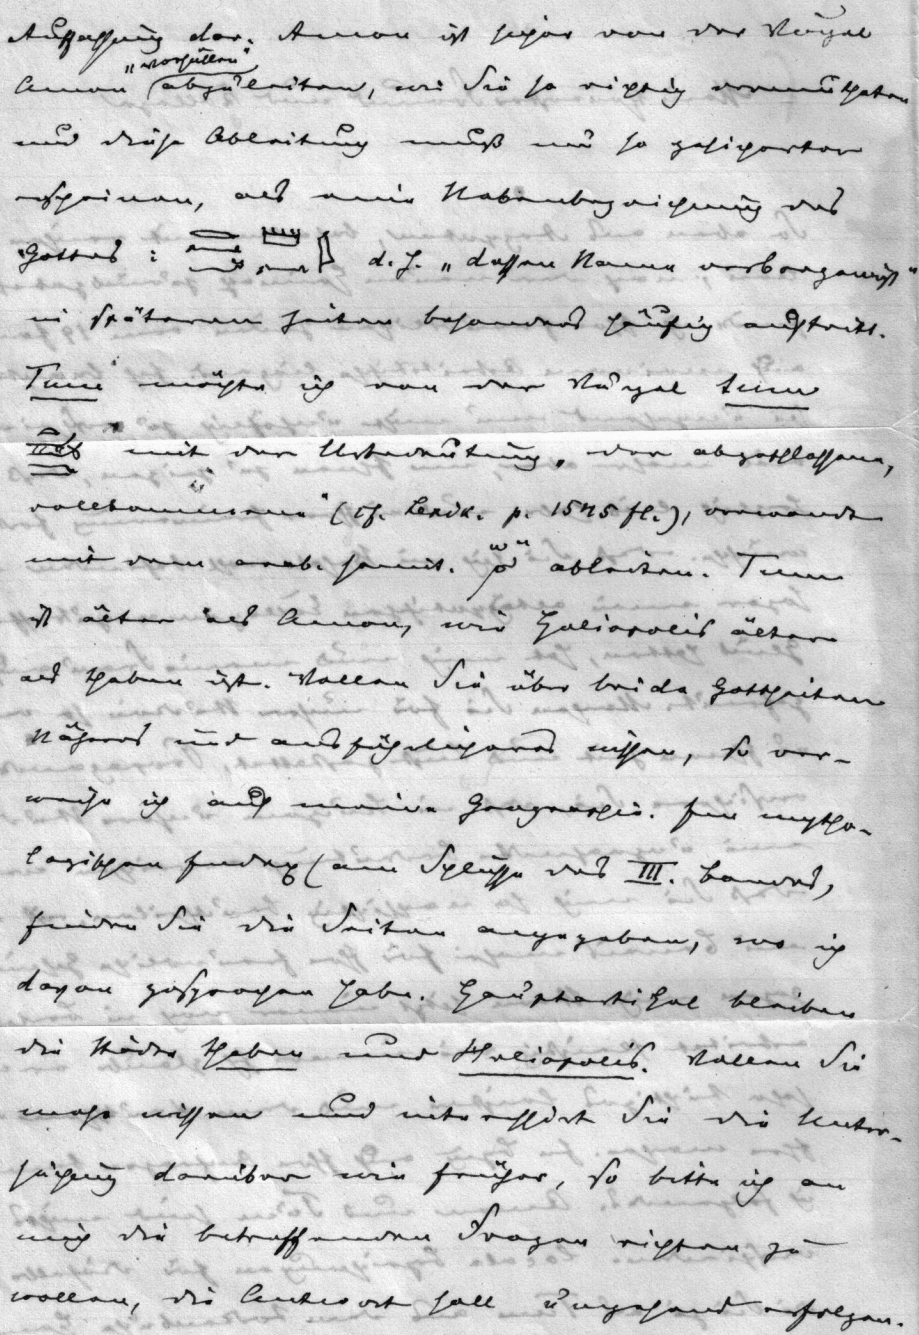 Auffassung dar. Amon ist sicher von der Wurzel
„verhüllen“
amon abzuleiten, wie Sie so richtig vermutheten
und diese Ableitung muß um so gesicherter
erscheinen, als eine Nebenbezeichnung des
Gottes: d. h. „dessen Name verborgen ist“
in späteren Zeiten besonders häufig auftritt.
Tum möchte ich von der Wurzel tem
mit der Urbedeutung „der abgeschlossene,
vollkommene“ (cf. Lexik. p. 1545 fl.), verwandt
mit dem arab. semit. تم ableiten. Tum
ist älter als Amon, wie Heliopolis älter
als Theben ist. Wollen Sie über beide Gottheiten
Näheres und ausführlicheres wissen, so ver-
weise ich auf meine Geographie. Im mytho-
logischen Index (am Schlusse des III. Bandes,
finden Sie die Seiten angegeben, wo ich
davon gesprochen habe. Hauptartikel bleiben
die Städte Theben und Heliopolis. Wollen Sie
mehr wissen und interessirt Sie die Unter-
suchung darüber wie früher, so bitte ich an
mich die betreffenden Fragen richten zu
wollen, die Antwort soll umgehend erfolgen.